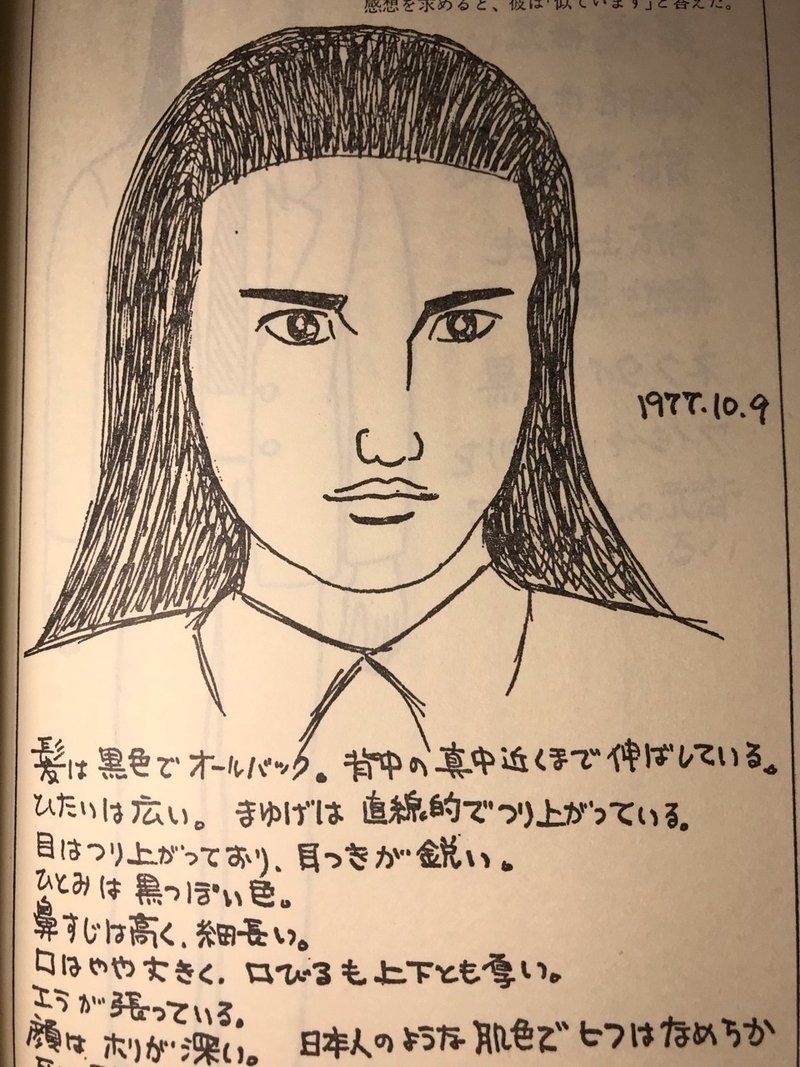 感想を求めると、彼は「似ています」と答えた。
1977.10.9
髪は黒色でオールバック。背中の真中近くまで伸ばしている。
ひたいは広い。まゆげは直線的でつり上がっている。
目はつり上がっており、目つきが鋭い。
ひとみは黒っぽい色。
鼻すじは高く、細長い。
口はやや大きく、口びるも上下とも厚い。
エラが張っている。
顔はホリが深い。 日本人のような肌色でヒフはなめらか